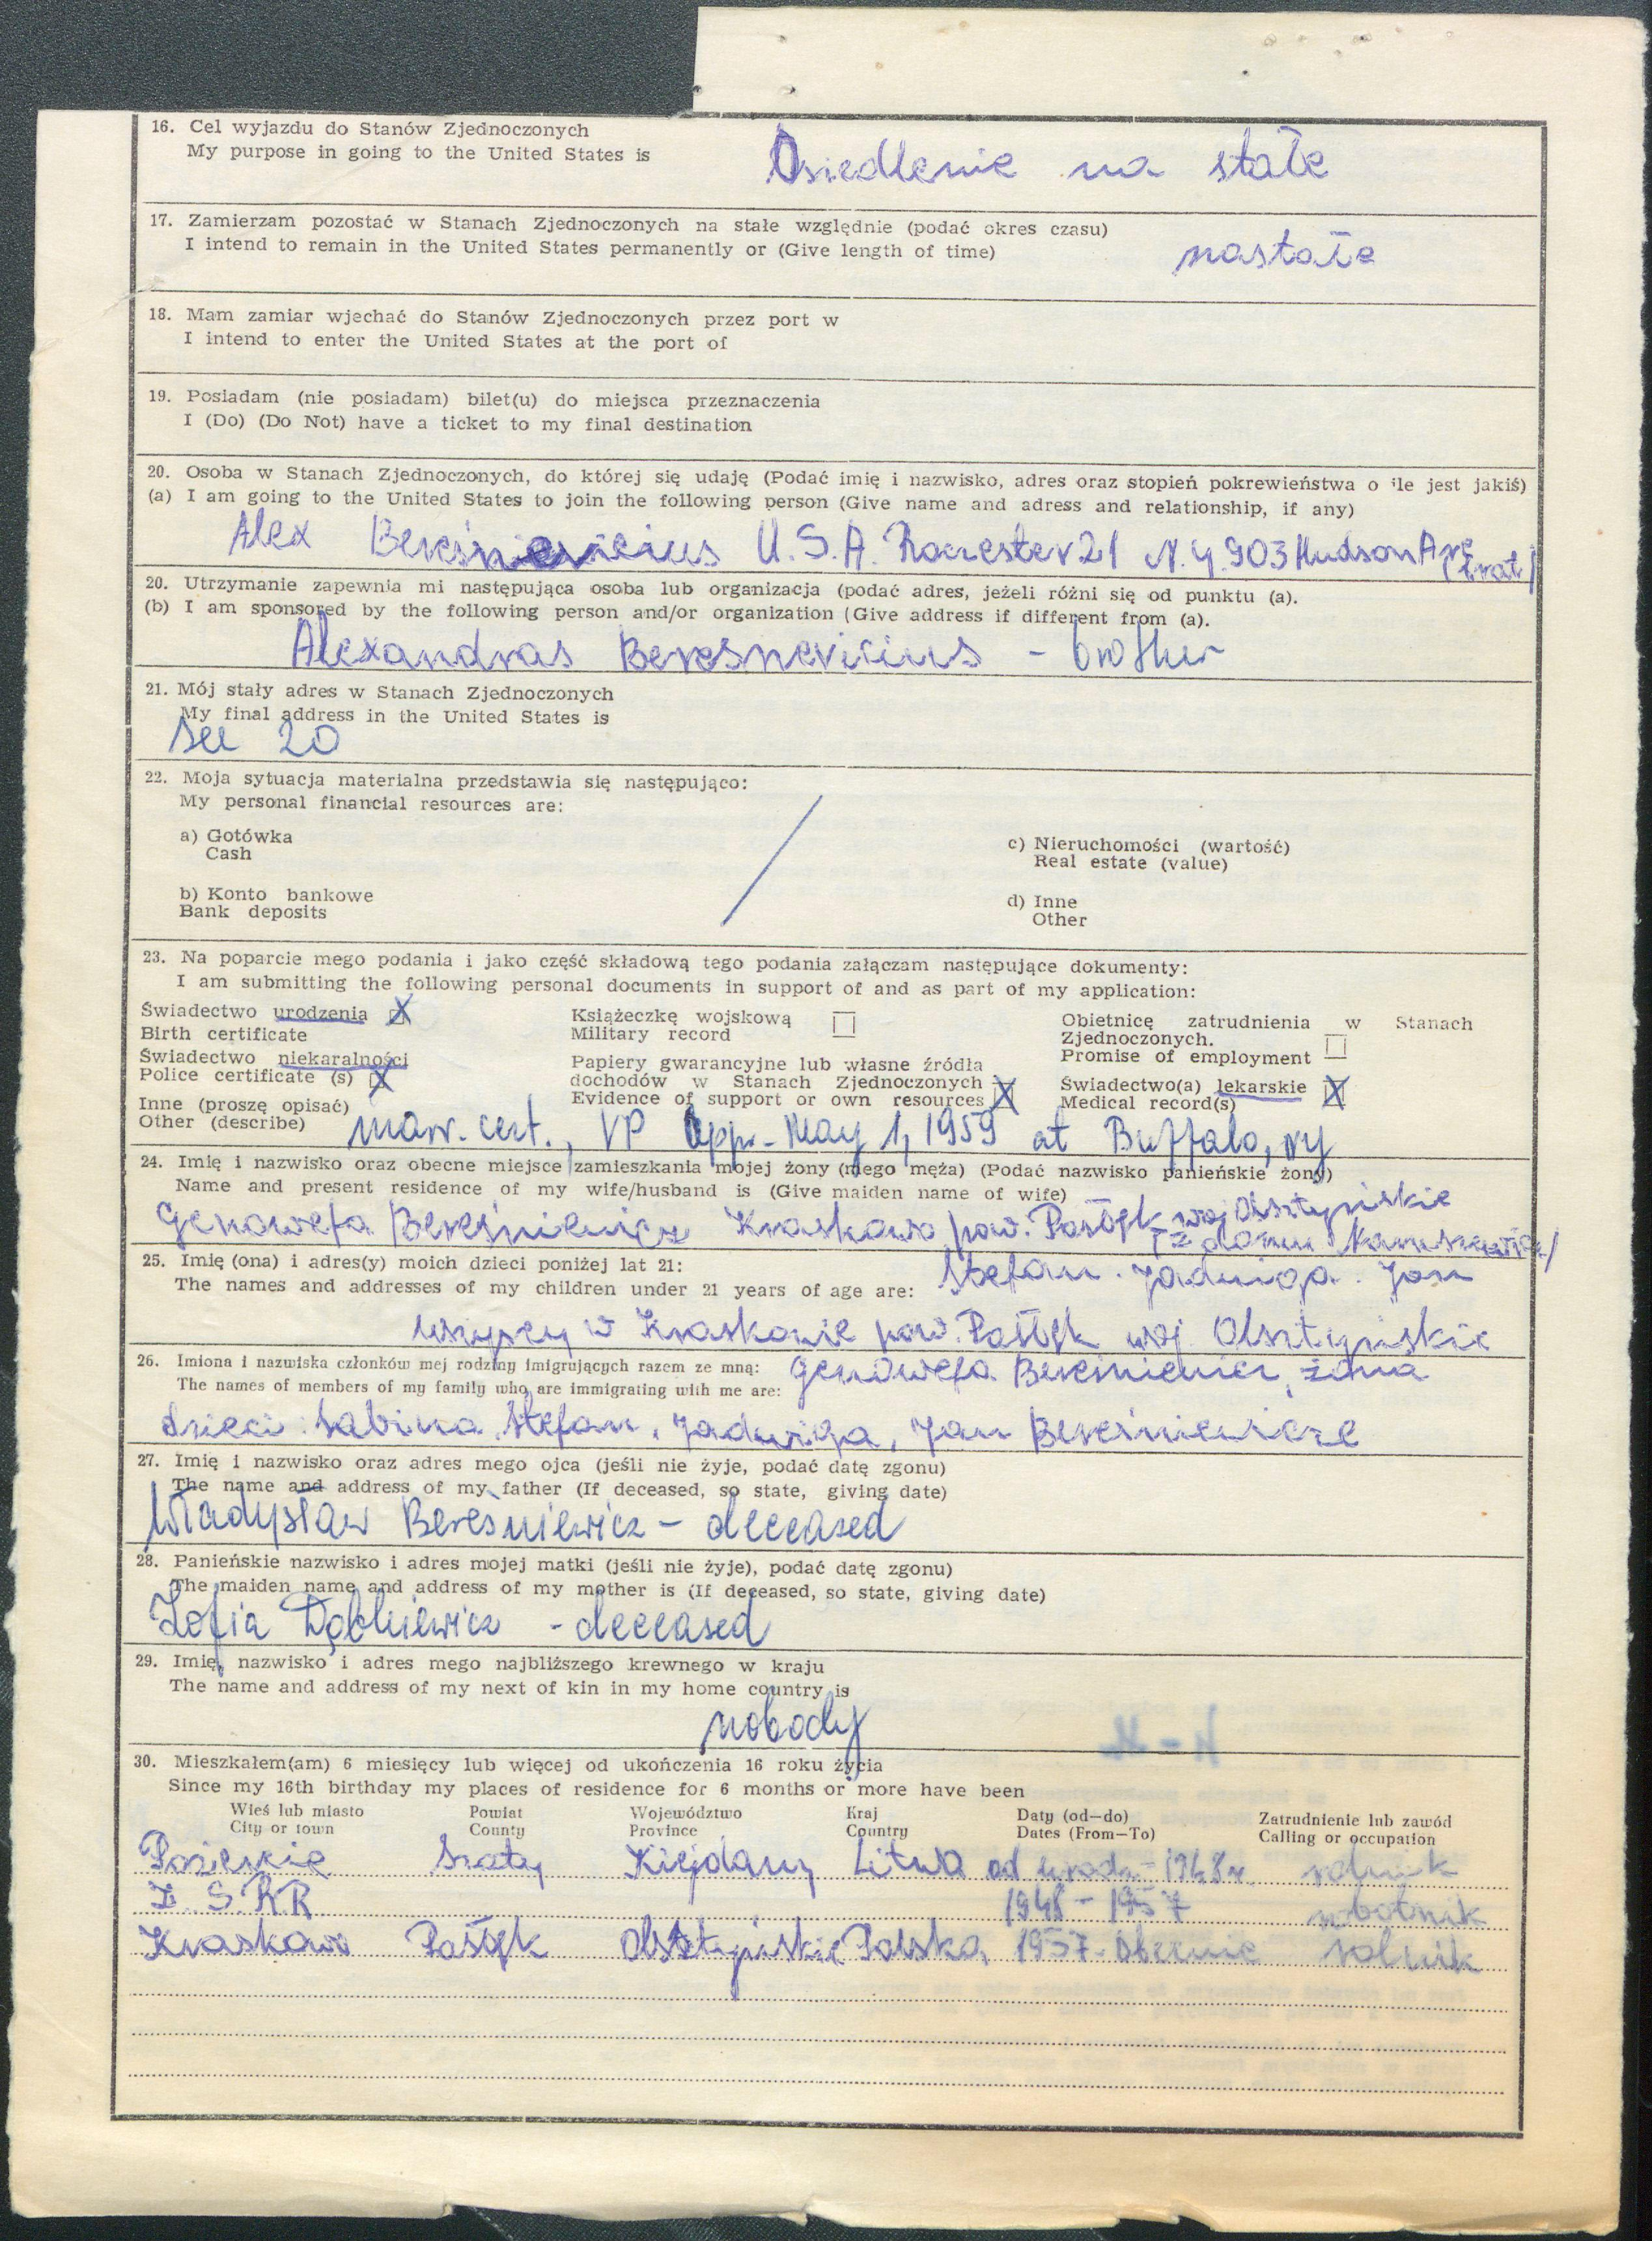 16. Cel wyjazdu do Stanów Zjednoczonych
My purpose in going to the United States is
Osiedlenie na stałe
17. Zamierzam pozostać w Stanach Zjednoczonych na stałe względnie (podać okres czasu)
I intend to remain in the United States permanently or (Give length of time)
nastałe
18. Mam zamiar wjechać do Stanów Zjednoczonych przez port w
I intend to enter the United States at the port of
19. Posiadam (nie posiadam) bilet(u) do miejsca przeznaczenia
I (Do) (Do Not) have a ticket to my final destination
20. Osoba w Stanach Zjednoczonych, do której się udaję (Podać imię i nazwisko, adres oraz stopień pokrewieństwa o ile jest jakiś)
(a) I am going to the United States to join the following person (Give name and adress and relationship, if any)
Alex U.S.A. Rocrester 21 N.Y. 903 Hudson Ave (brat)
20. Utrzymanie zapewnia mi następująca osoba lub organizacja (podać adres, jeżeli różni się od punktu (a).
(b) I am sponsored by the following person and/or organization (Give address if different from (a).
Alexandras Beresnevicius - brother
21. Mój stały adres w Stanach Zjednoczonych
My final address in the United States is
See 20
22. Moja sytuacja materialna przedstawia się następująco:
My personal financial resources are:
a) Gotówka
Cash
c) Nieruchomości (wartość)
Real estate (value)
b) Konto bankowe
Bank deposits
d) Inne
Other
23. Na poparcie mego podania i jako część składową tego podania załączam następujące dokumenty:
I am submitting the following personal documents in support of and as part of my application:
Świadectwo urodzenia X
Birth certificate
Książeczkę wojskową
Military record
Obietnicę zatrudnienia w Stanach
Zjednoczonych.
Promise of employment
Świadectwo niekaralności
Police certificate (s) X
Papiery gwarancyjne lub własne źródła
dochodów w Stanach Zjednoczonych
Evidence of support or own resources X
Świadectwo(a) lekarskie X
Medical record(s)
Inne (proszę opisać)
Other (describe) marr. cert., VP App. May 1, 1959 at Buffalo, ny
24. Imię i nazwisko oraz obecne miejsce zamieszkania mojej żony (mego męża) (Podać nazwisko panieńskie żony)
Name and present residence of my wife/husband is (Give maiden name of wife)
Genowefa Bereśniewicz Kraskowo pow. Pasłęk woj Olsztyńskie
(z domu
25. Imię (ona) i adres(y) moich dzieci poniżej lat 21:
The names and addresses of my children under 21 years of age are: Stefan. Jadwiga. Jan
wszyscy w Kraskowie pow. Pasłęk woj. Olsztyńskie
26. Imiona i nazwiska członków mej rodziny imigrujących razem ze mną:
The names of members of my family who are immigrating with me are: Genowefa Bereśniewicz, żona
dzieci: Sabina, Stefan, Jadwiga, Jan Bereśniewicze
27. Imię i nazwisko oraz adres mego ojca (jeśli nie żyje, podać datę zgonu)
The name and address of my father (If deceased, so state, giving date)
Władysław Bereśniewicz - deceased
28. Panieńskie nazwisko i adres mojej matki (jeśli nie żyje), podać datę zgonu)
The maiden name and address of my mother is (If deceased, so state, giving date)
Zofia - deceased
29. Imię, nazwisko i adres mego najbliższego krewnego w kraju
The name and address of my next of kin in my home country is
nobody
30. Mieszkałem(am) 6 miesięcy lub więcej od ukończenia 16 roku życia
Since my 16th birthday my places of residence for 6 months or more have been
Wieś lub miasto Powiat Województwo Kraj Daty (od—do) Zatrudnienie lub zawód
City or town County Province Country Dates (From—To) Calling or occupation
Szaty Kiejdany Litwa od urodz- 1948r. rolnik
Z.S.R.R 1948 - 1957 robotnik
Kraskowo Pasłęk Olsztyńskie Polska, 1957 - obecnie rolnik